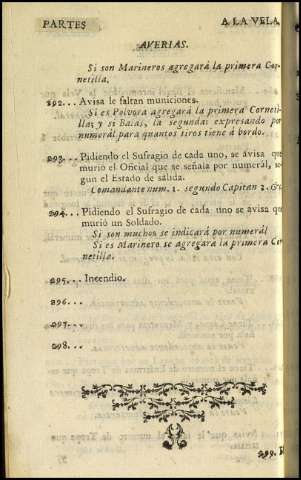 PARTES A LA VELA
AVERIAS.
Si son Marineros agregará la primera Cor-
netilla.
292... Avisa le faltan municiones.
Si es Polvora agregará la primera Corneti-
lla; y si balas, la segunda: expresando por
numerál para quantos tiros tiene á bordo.
293... Pidiendo el Sufragio de cada uno, se avisa que
murió el Oficial que se señala por numerál, se-
gun el Estado de salida.
Comandante num. 1. segundo Capitan 2. &c.
294... Pidiendo el Sufragio de cada uno se avisa que
murió un Soldado.
Si son muchos se indicará por numerál
Si es Marinero se agregará la primera Cor-
netilla.
295... Incendio.
296...
297...
298...
299.